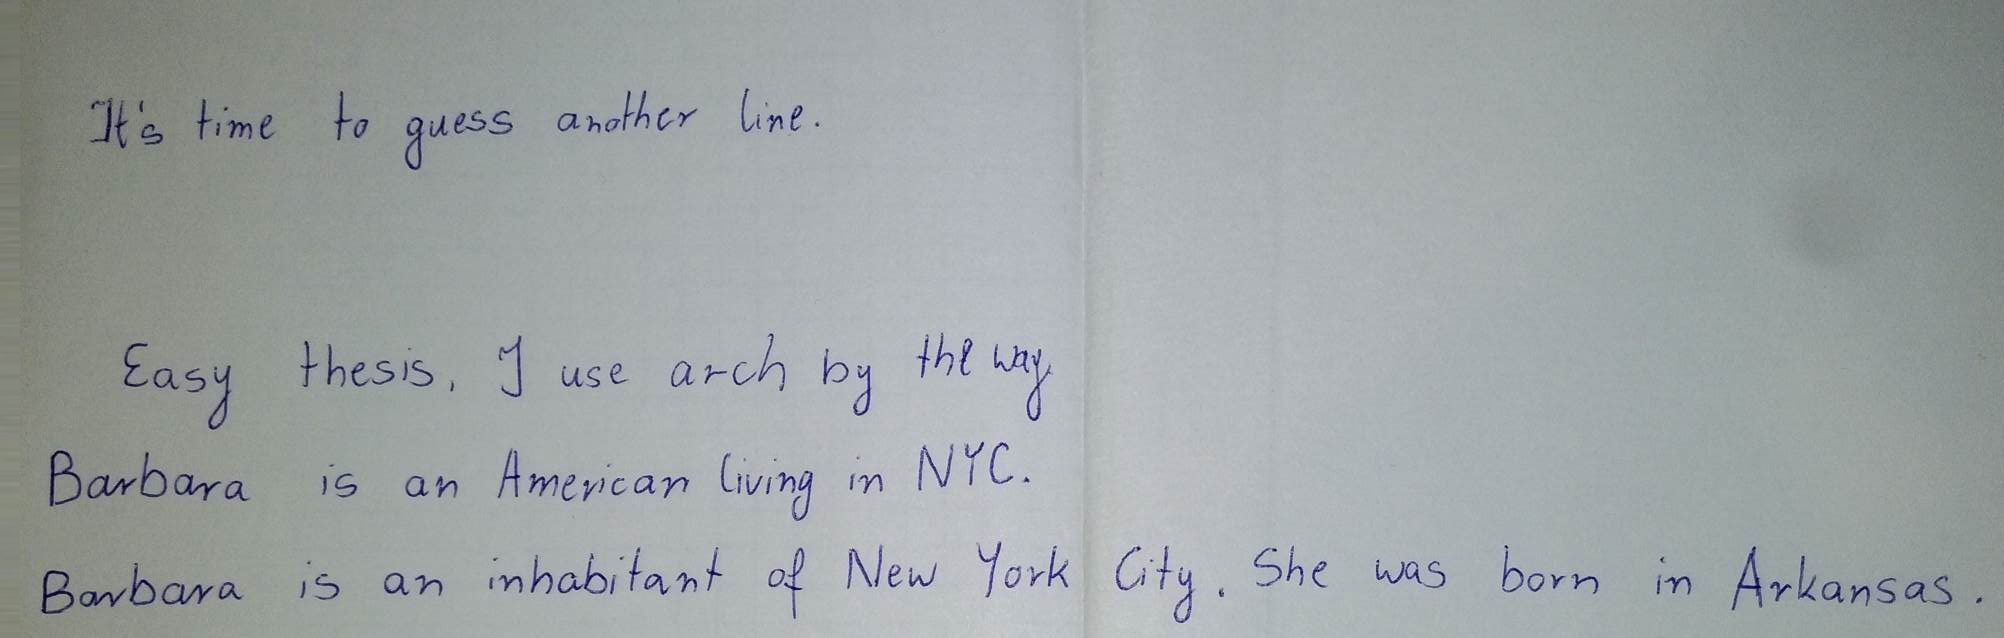 It's time to guess another line.
Easy thesis, I use arch by the way.
Barbara is an American living in NYC.
Barbara is an inhabitant of New York City. She was born in Arkansas.